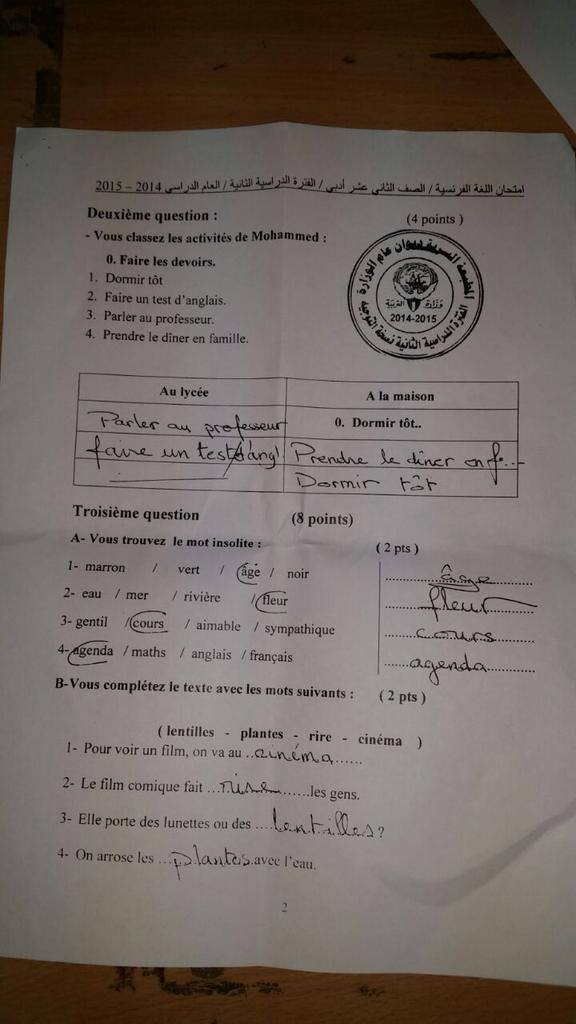 امتحان اللغة الفرنسية / الصف الثاني عشر أدبي / الفترة الدراسية الثانية / العام الدراسي 2014 – 2015
Deuxième question :
(4 points )
- Vous classez les activités de Mohammed :
0. Faire les devoirs.
1. Dormir tôt
2. Faire un test d'anglais.
3. Parler au professeur.
4. Prendre le dîner en famille.
المطبعة السرية ديوان عام الوزارة
وزارة التربية
2014-2015
الفترة الدراسية الثانية نسخة التوجيه
Au lycée
A la maison
Parler au professeur
0. Dormir tôt..
faire un test d'angl
Prendre le dîner en f...
Dormir tôt
Troisième question
(8 points)
A- Vous trouvez le mot insolite :
( 2 pts )
1- marron / vert / âgé / noir
2- eau / mer / rivière / fleur
fleur
3- gentil / cours / aimable / sympathique
cours
4- agenda / maths / anglais / français
agenda
B-Vous complétez le texte avec les mots suivants :
( 2 pts )
( lentilles - plantes - rire - cinéma )
1- Pour voir un film, on va au ..cinéma......
2- Le film comique fait ...rire......les gens.
3- Elle porte des lunettes ou des ....lentilles?
4- On arrose les ...plantes.avec l'eau.
2